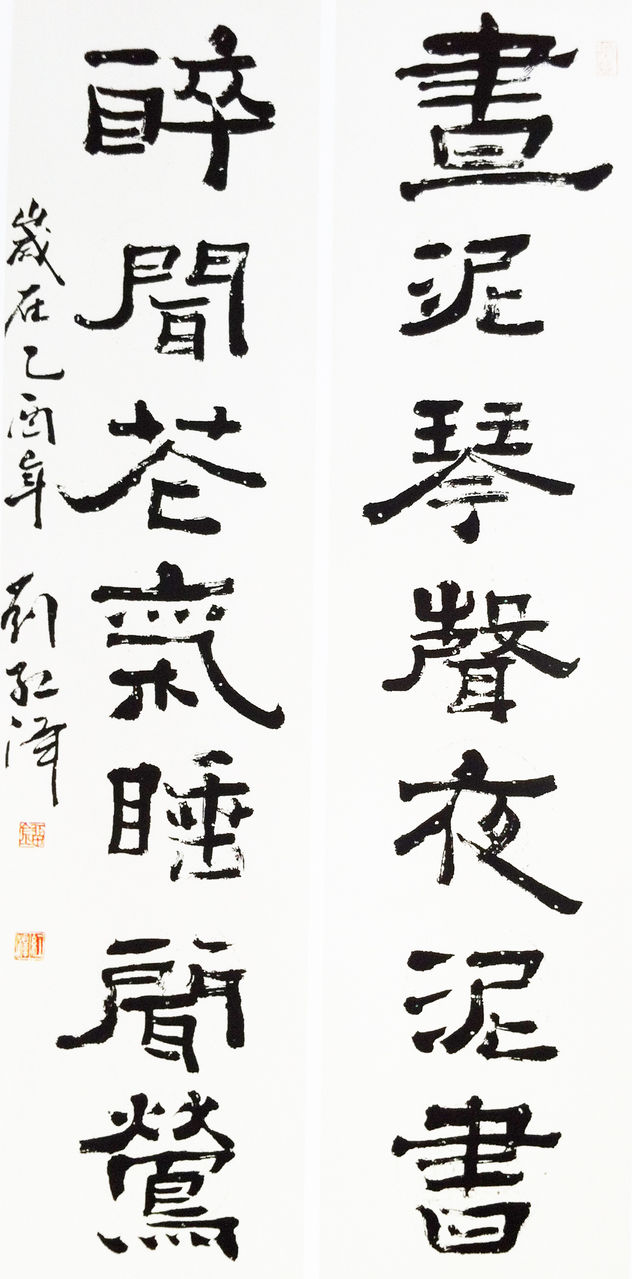 晝泥琴聲夜泥書
醉聞花氣睡聞鶯
歲在乙酉年